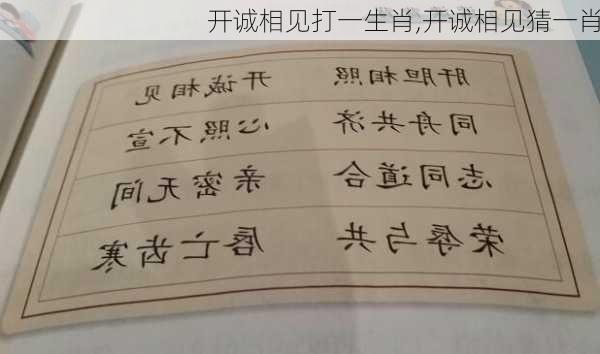 开诚相见打一生肖,开诚相见猜一肖
肝胆相照 开诚相见
同舟共济 心照不宣
志同道合 亲密无间
荣辱与共 唇亡齿寒